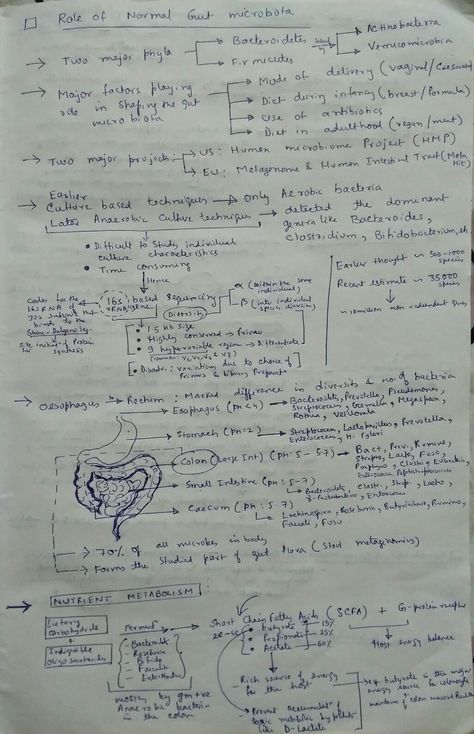 Role of Normal Gut microbiota
→ Two major phyla → Bacteroidetes → Actinobacteria
→ Verrucomicrobia
→ Firmicutes
→ Major factors playing role in shaping the gut microbiota
→ Mode of delivery (vaginal/
→ Diet during infancy (breast/formula)
→ Use of antibiotics
→ Diet in adulthood (vegan/meat)
→ Two major projects → US: Human microbiome Project (HMP)
→ EU: Metagenome & Human Intestinal Tract (Meta Hit)
→ Earlier
Culture based techniques → Only Aerobic bacteria
Later Anaerobic Culture techniques → detected the dominant
genera like Bacteroides,
Clostridium, Bifidobacterium,
• Difficult to study individual
culture characteristics
• Time consuming
Hence
Earlier thought ~ 500-1000 species
Recent estimate ~ 35000 species
~ 10 million non redundant genes
Codes for the
16s RNA of
30s subunit that
binds to the
Shine-Dalgarno Seq.
Site initiat'n of Protein
Synthesis
← 16s rRNA gene based sequencing
Diversity
α (within the same individual)
β (inter individual species diversity)
• 1.5 kb size
• Highly conserved → Primer
• 9 hypervariable region → Differentiate
• Disadv: variations due to choice of
Primers & Library Preparat'n
→ Oesophagus → Rectum: Marked difference in diversity & no. of bacteria
→ Esophagus (pH <4) → Bacteroidits, Prevotella, Pseudomonas,
Streptococcus, Gemella, Megasphaera,
Rothia, Veillonella
→ Stomach (pH=2) → Streptococcus, Lactobacillus, Prevotella,
Enterococcus, H. Pylori
→ Colon (Large Int) (pH: 5 - 5.7) → Bact, Prev, Rumino,
Strepto, Lacto, Fuso,
Porphyro, Clostri, Eubacteria,
Enterococcus, Peptostreptococcus
→ Small Intestine (pH: 5-7)
Bacteroidits, Clostr, Strep, Lacto,
γ-Protobacteria, Enterococcus
→ Caecum (pH: 5.7)
→ Lachnospira, Rosebria, Butyrivibrio, Rumino,
Faecali, Fuso
→ 70% of all microbes in body
→ Forms the studied part of gut flora (Stool metaginomics)
→ NUTRIENT METABOLISM:
Dietary
Carbohydrate
+
Indigestible
Oligosaccharides
Ferment
- Bacteroidits
- Roseburia
- Bifido
- Faecali
- Enterobacteria
mostly by gm +ve
Anaerobic bacteria
in the colon
Short Chain Fatty Acids (SCFA) + G-protein receptor
• Butyrate → 15%
• Propionate → 25%
• Acetate → 60%
Host energy balance
→ Rich source of energy
for the host
→ Prevent accumulat'n of
toxic metabolic by products
like D-Lactate
→ esp. butyrate is the major
energy source for colonocyte